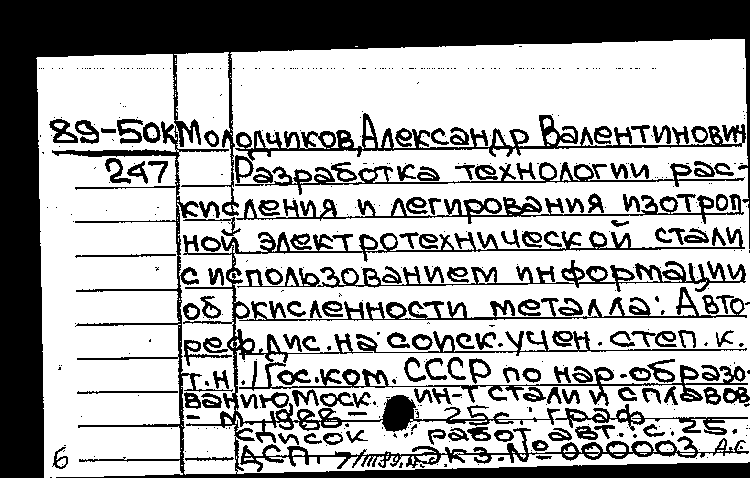 89-50К Молодчиков, Александр Валентинович
247 Разработка технологии рас-
кисления и легирования изотроп-
ной электротехнической стали
с использованием информации
об окисленности металла: Авто-
реф. дис. на соиск. учен. степ. к.
т.н. / Гос. ком. СССР по нар. образо-
ванию, Моск. ин-т стали и сплавов
- М., 1988. - 25с.: граф.
Список работ авт.: с. 25.
Б ДСП. Экз. № 000003.